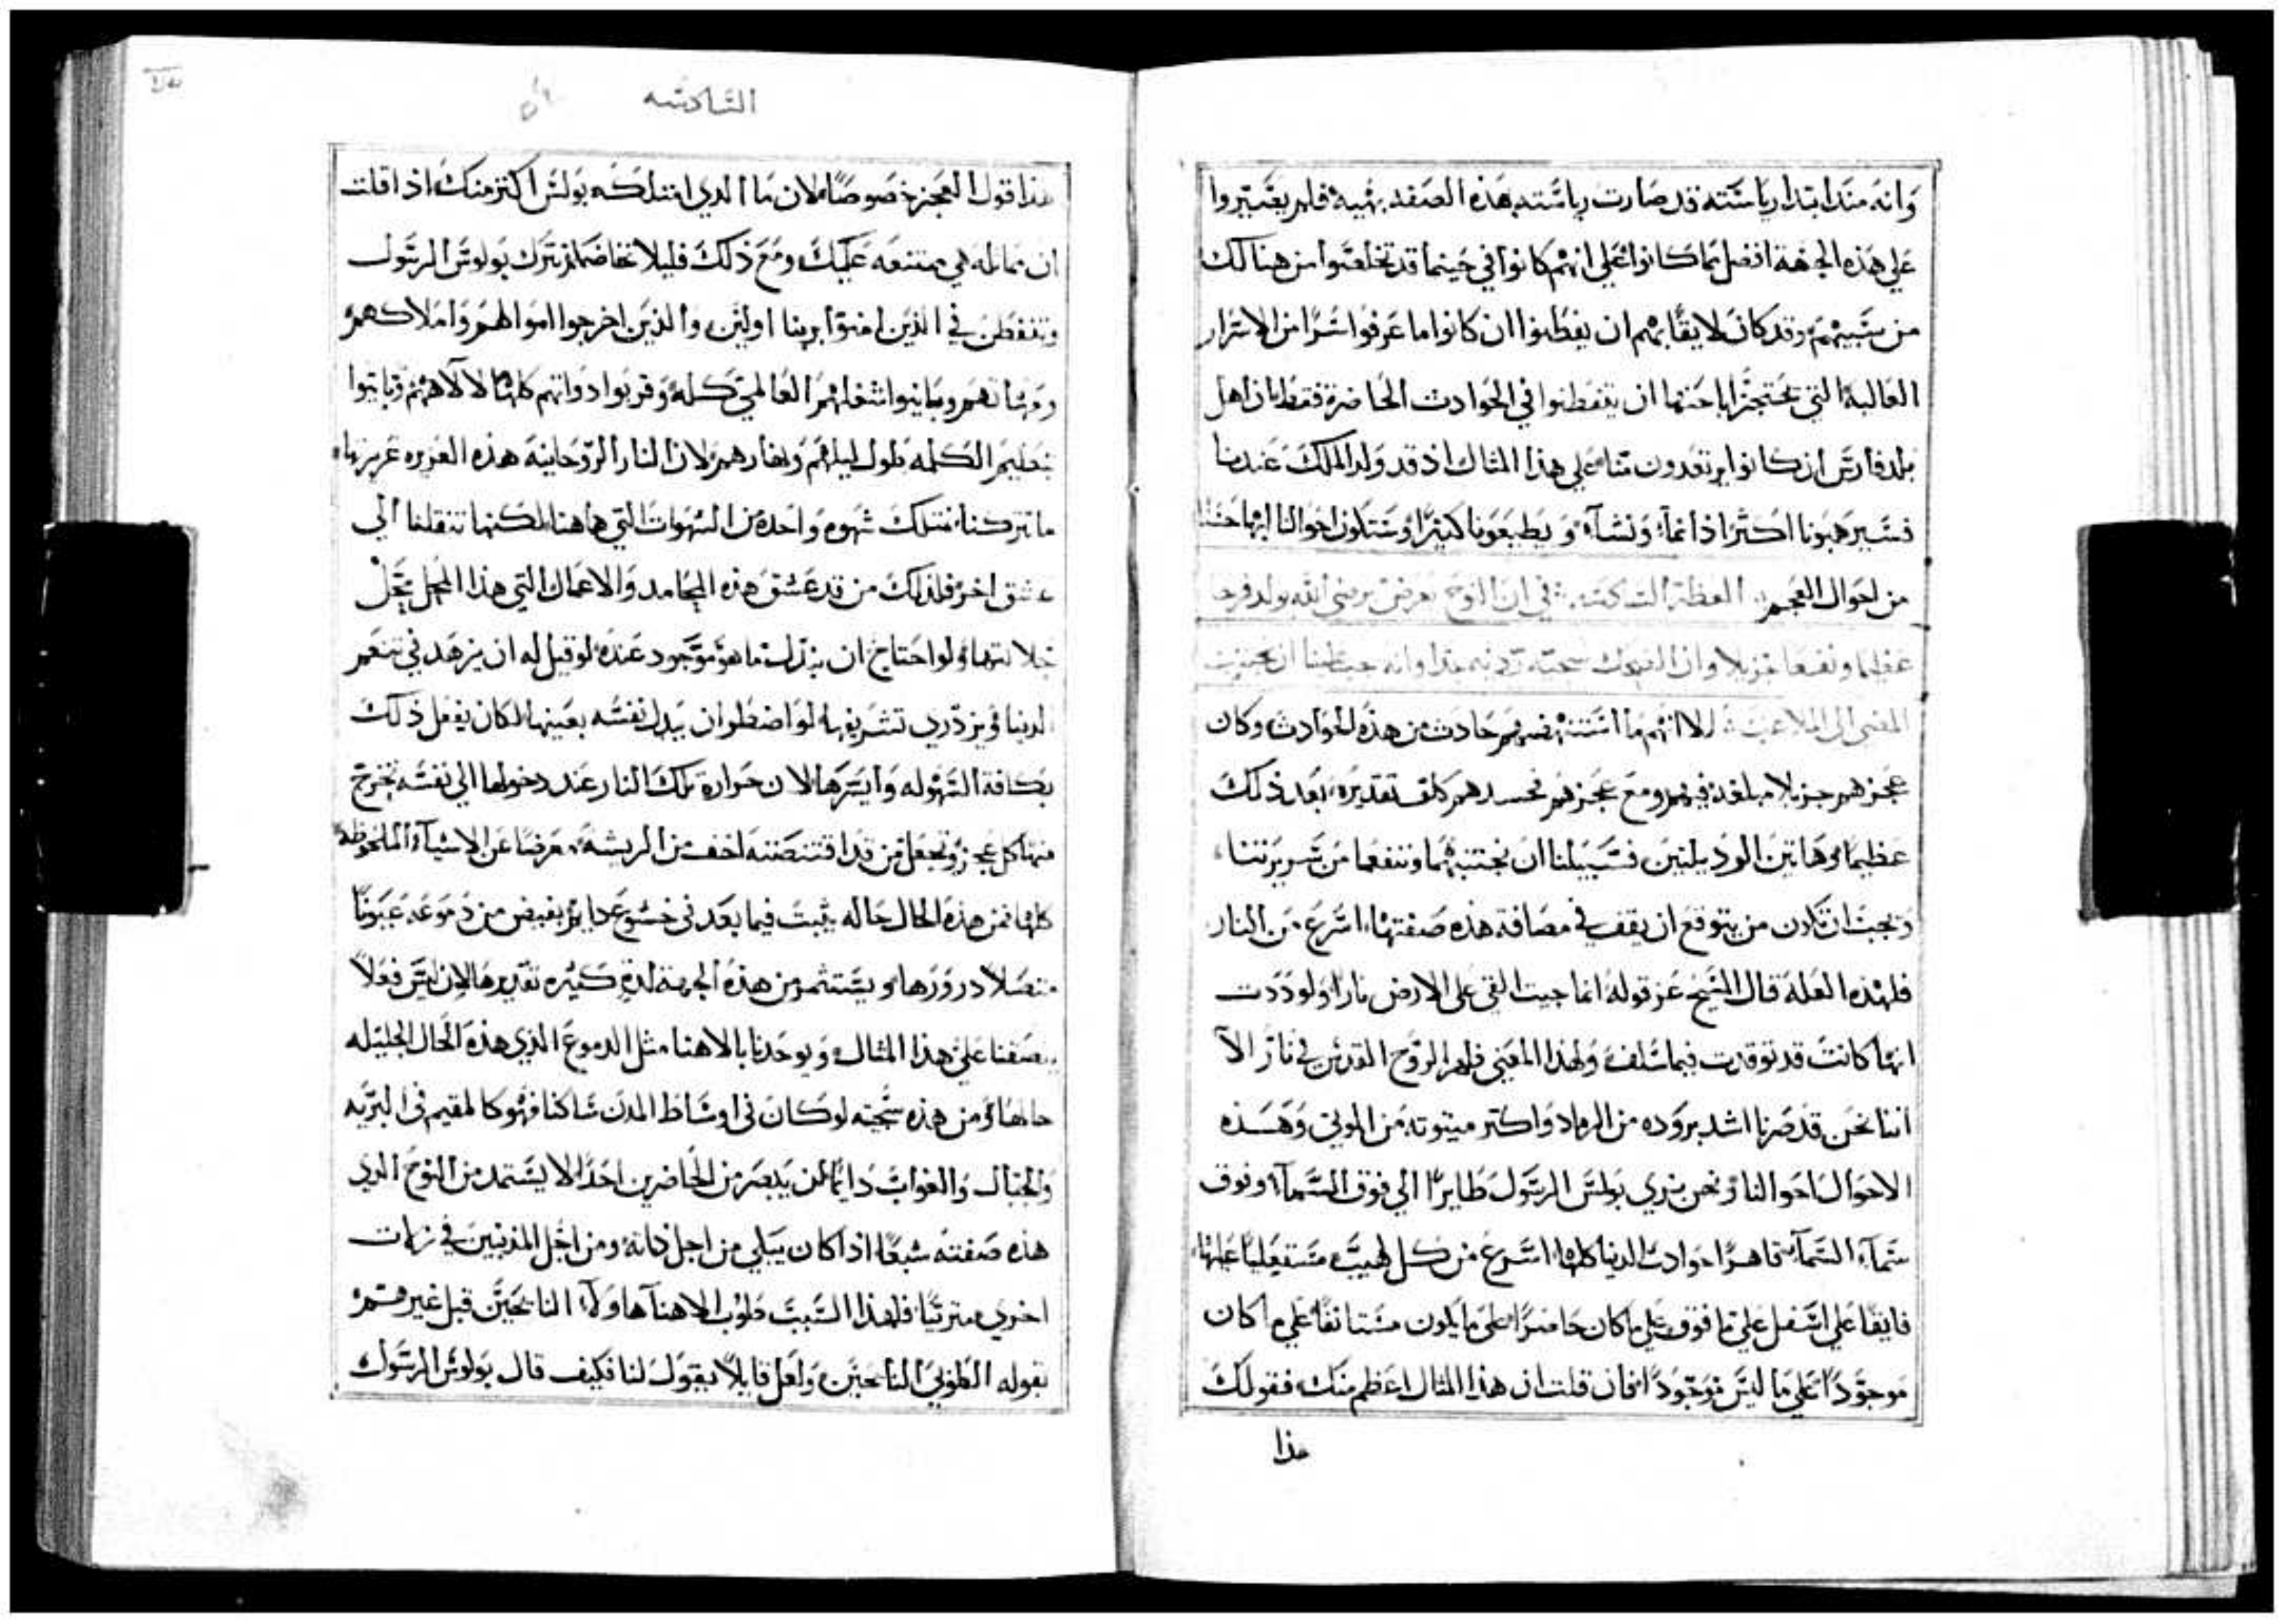 وانه منذ ابتدا رياسته قد صارت رياسته هذه الصفه بهيه فلم يعتبروا
علي هذه الجهة افضل مما كانوا علي انهم كانوا في حينها قد تخلصوا من هنالك
من سبيهم وقد كان لايقًا بهم ان يفطنوا ان كانوا ما عرفوا سرًا من الاسرار
الغالبة التي اباحتها ان يتفطنوا في الحوادث الحاضرة فقط بان اهل
بلد فارس ان كانوا يرتعدون منا علي هذا المثال اذ قد ولد الملك عندنا
فسيرهبونا اكثر اذا نما ونشأ ويطيعونا كثيرًا وستكون احوالنا ابهاحسنًا
من احوال العجم العظة السادسه في ان النوح يرضي الله يولد فرحا
عظيما ونفعا جزيلا وان الضحك سجيته رديه جدا وانه
المضي الى الملاعب الا انهم ما استنهضهم حادث من هذه الحوادث وكان
عجزهم جزيلا مبلغه فيهم ومع عجزهم فحسدهم كان تقديره بعد ذلك
عظيمًا وهاتين الرذيلتين فسبيلنا ان نجتنبهما وننفعهما من سريرتنا
ويجب ان يكون من يتوقع ان يقف في مصافة هذه صفتها اسرع من النار
فلهذه العلة قال المسيح عز قوله انما جيت القي على الارض نارًا ولوددت
انها كانت قد توقدت فيما سلف ولهذا المعني ظهر الروح القدس في نار الا
اننا نحن قد صرنا اشد بروده من الرماد واكثر ميتوته من الموتى وهذه
الاحوال احوالنا ونحن نري بولس الرسول طايرًا الي فوق السمآ وفوق
سمآء السمآ قاهرًا حوادث الدنيا كلها اسرع من كل لهيب مستعليًا عليها
فايقًا علي اسفل علي ما فوق علي ما كان حاضرًا على ما يكون مستانفًا علي ما كان
موجودًا علي ما ليس موجودًا فان قلت ان هذا المثال اعظم منك فقولك
هذا
السادسه
هذا قول العجز خصوصًا لان ما الذي امتلكه بولس اكثر منك اذ اقلت
ان مماثله هي ممتنعه عليك ومع ذلك فليلا نخاصمك نترك بولوس الرسول
ونتفطن في الذين امنوا بربنا اولين والذين اخرجوا اموالهم واملاكهم
ومهماتهم وباينوا اشغالهم العالمي كله وقربوا ذواتهم كلها لالاههم وباتوا
بتعليم الكلمه طول ليلهم ونهارهم لان النار الروحانية هذه الغريزه غريزتها
ما تتركنا نمتلك شهوه واحده من الشهوات التي هاهنا لكنها تنقلنا الي
عشق اخر فلذلك من قد عشق هذه المحامد والاعمال التي هذا المحل محل
جلالتها ولو احتاج ان يبذل ما هو موجود عنده لو قيل له ان يزهد في تنعم
الدنيا ويزدري تشريفها لو اضطر ان يبدل نفسه بعينها لكان يفعل ذلك
بكافة السهوله وايسرها لان حرارة تلك النار عند دخولها الي نفسه تخرج
منها كل عجز وتجعل من قد اقتنصته اخف من الريشه معرضًا عن الاشيآ الملحوظه
كلها فمن هذه الحال حاله يثبت فيما بعد في خشوع دايم يفيض من دموعه عيونًا
متصلًا درورها ويستثمر من هذه الجهة لذه كثيره تقديرها لان ليس فعلًا
يصفنا علي هذا المثال ويوحدنا بالاهنا مثل الدموع الذي هذه الحال الجليله
حالها ومن هذه سجيته لو كان في اوساط المدن ساكنا فهو كالمقيم في البريه
والجبال والغواب دايمًا لن يبصر من الحاضرين احدًا لا يستمد من النوح الذي
هذه صفته شبعًا اذا كان يبكي من اجل ذاته ومن اجل المذنبين في زلات
اخري مترتيًا فلهذا السبب طوب الاهنا هاولآ النايحين قبل غيرهم
بقوله الطوبي للنايحين ولعل قايلًا يقول لنا فكيف قال بولوس الرسول